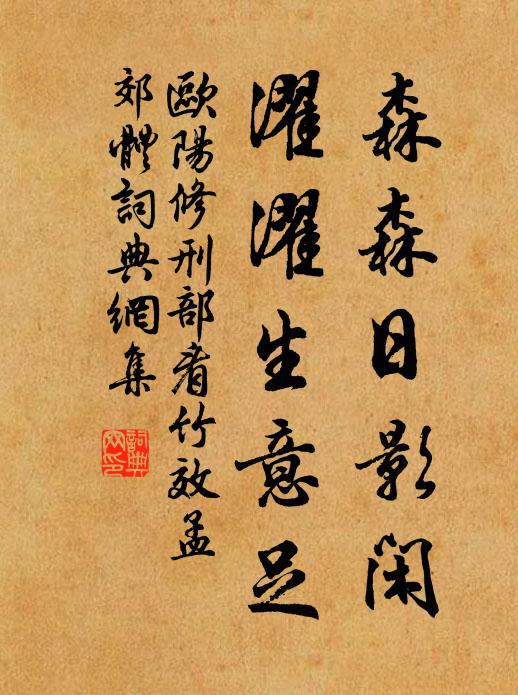 森森日影閑
濯濯生意足
歐陽修刑部看竹效孟
郊體詞典網集
詞典網印